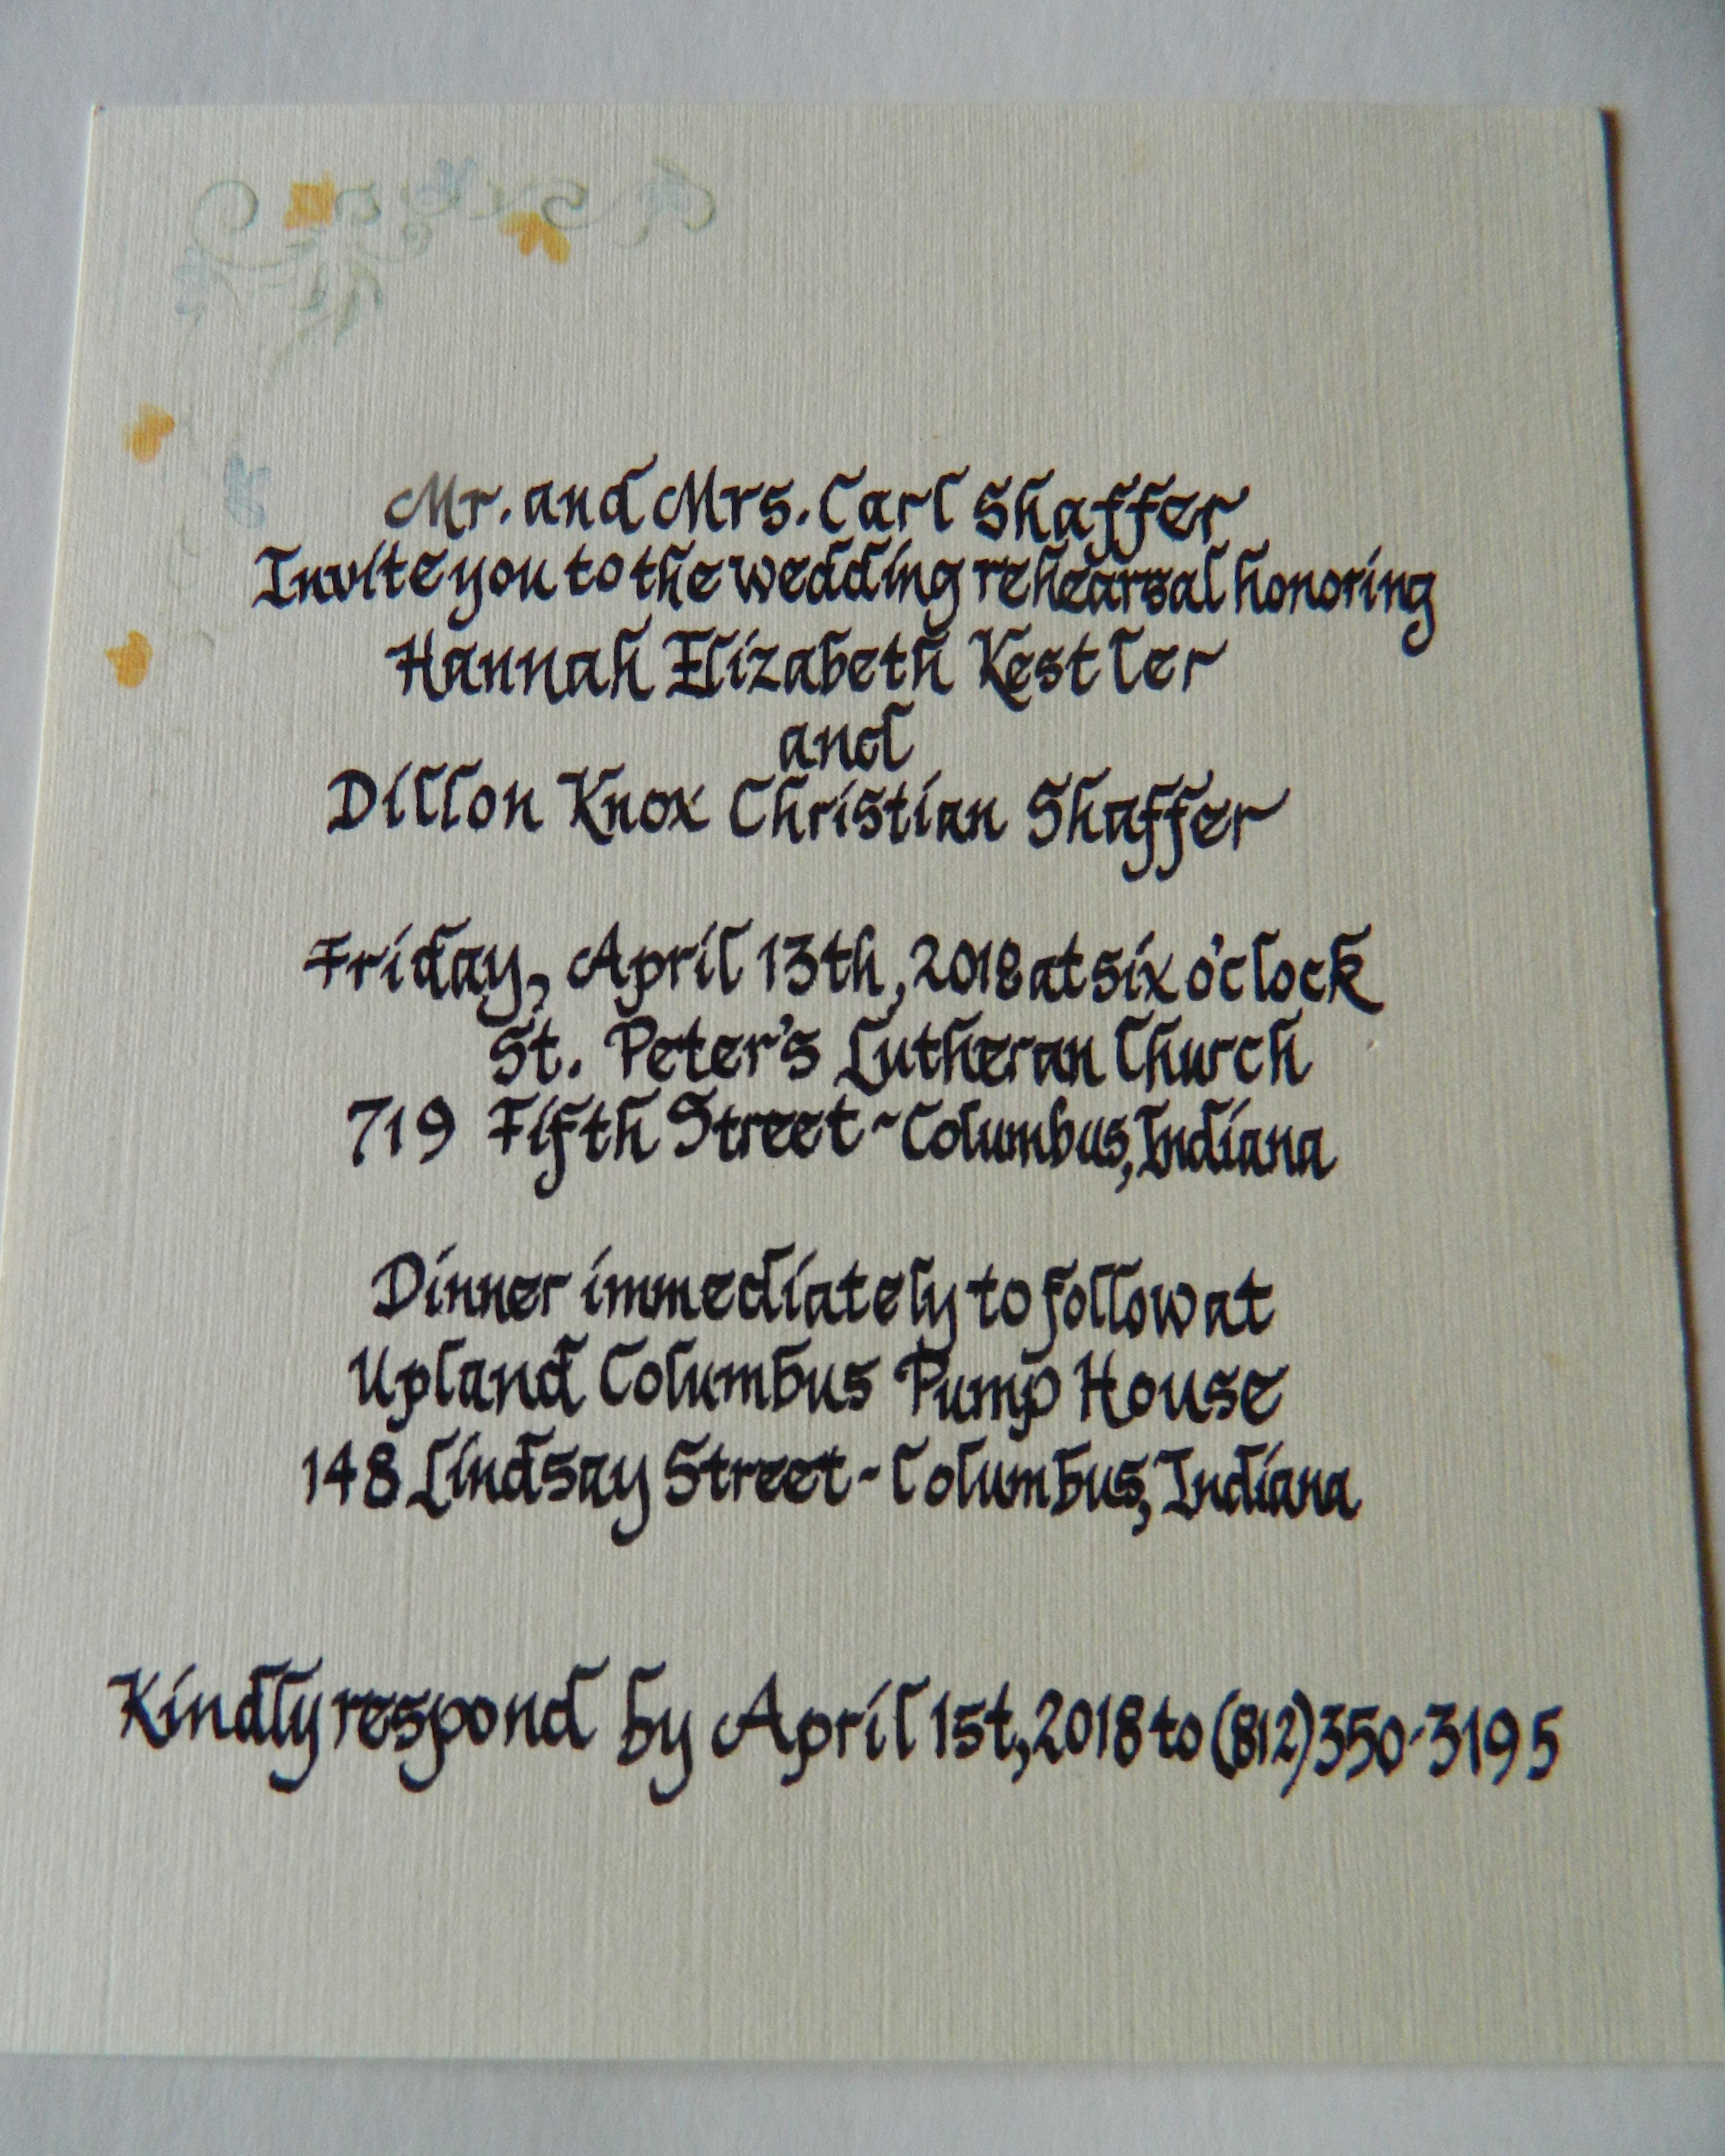 Mr. and Mrs. Carl Shaffer
Invite you to the wedding rehearsal honoring
Hannah Elizabeth Kestler
and
Dillon Knox Christian Shaffer
Friday, April 13th, 2018 at six o'clock
St. Peter's Lutheran Church
719 Fifth Street ~ Columbus, Indiana
Dinner immediately to follow at
Upland Columbus Pump House
148 Lindsay Street ~ Columbus, Indiana
Kindly respond by April 1st, 2018 to (812) 350-3195